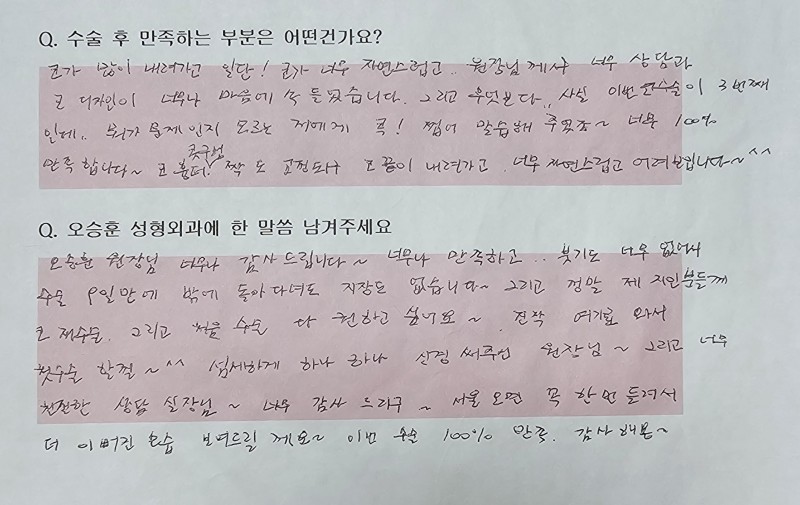 Q. 수술 후 만족하는 부분은 어떤건가요?
코가 많이 내려가고 일단! 코가 너무 자연스럽고.. 원장님께서 너무 상담과
코 디자인이 너무나 마음에 쏙 들었습니다. 그리고 무엇보다.. 사실 이번 코수술이 3번째
인데.. 뭐가 문제인지 모르는 저에게 콕! 찝어 말씀해 주었죠~ 너무 100%
만족합니다~ 코 흉터! 콧구멍 짝도 교정되구 코끝이 내려가고 너무 자연스럽고 어려보입니다~^^
Q. 오승훈 성형외과에 한 말씀 남겨주세요
오승훈 원장님 너무나 감사드립니다~ 너무나 만족하고.. 붓기도 너무 없어서
수술 9일만에 밖에 돌아다녀도 지장도 없습니다~ 그리고 정말 제 지인분들께
코 재수술. 그리고 처음 수술 다 권하고 싶어요~ 진작 여기로 와서
첫수술 할껄~^^ 섬세하게 하나 하나 신경써주신 원장님~ 그리고 너무
친절한 상담 실장님~ 너무 감사 드리구~ 서울 오면 꼭 한번 들려서
더 이뻐진 모습 보여드릴께요~ 이번 수술 100% 만족. 감사해용~